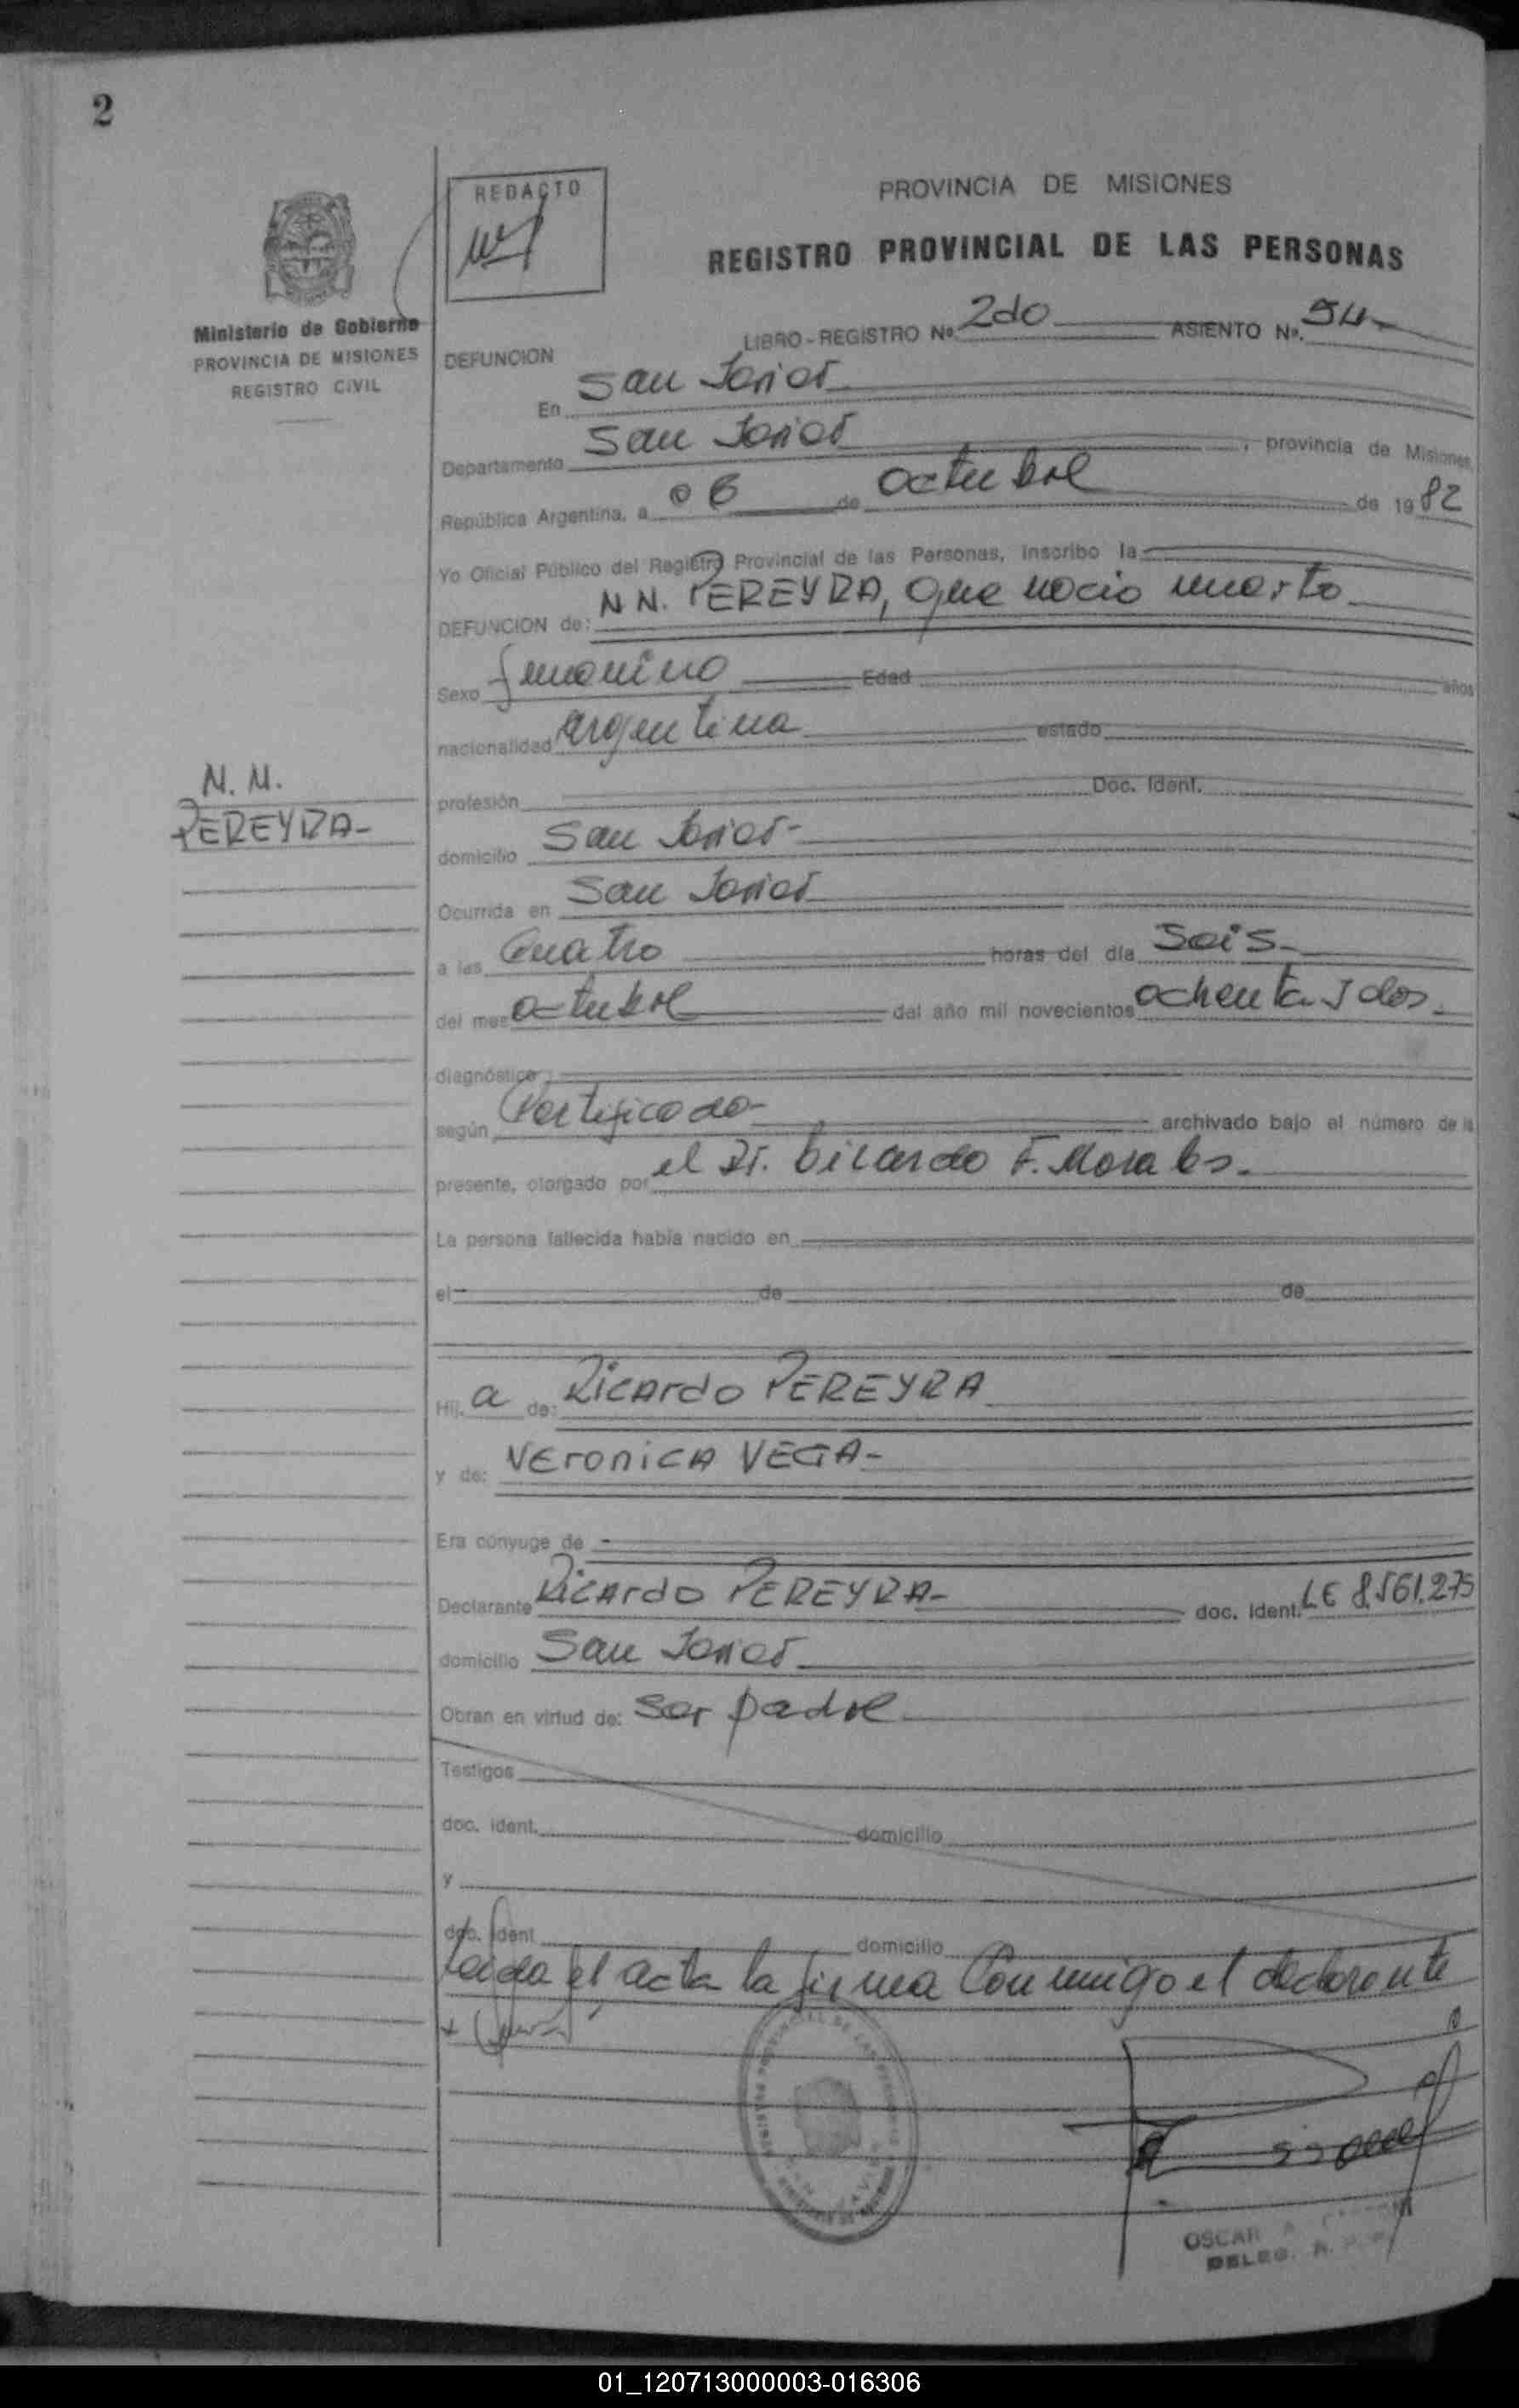 2
REDACTO
PROVINCIA DE MISIONES
REGISTRO PROVINCIAL DE LAS PERSONAS
Ministerio de Gobierno
PROVINCIA DE MISIONES
REGISTRO CIVIL
LIBRO - REGISTRO Nº. 2do ASIENTO Nº. 54
DEFUNCION
En San Javier
Departamento San Javier, provincia de Misiones,
República Argentina, a 06 de octubre de 1982
Yo Oficial Público del Registro Provincial de las Personas, inscribo la
DEFUNCION de: N N. PEREYRA, que nacio muerto
Sexo femenino Edad años
nacionalidad Argentina estado
N. N.
PEREYRA-
profesión Doc. Ident.
domicilio San Javier-
Ocurrida en San Javier
a las Cuatro horas del día Seis-
del mes octubre del año mil novecientos ochenta y dos.
diagnóstico
según Certificado- archivado bajo el número de la
presente, otorgado por el Dr. F. Morales.
La persona fallecida había nacido en
el de de
Hij. a de: Ricardo PEREYRA
y de: VEronicA VEGA-
Era cónyuge de -
Declarante Ricardo PEREYRA- doc. ident. LE 8.561.275
domicilio San Javier
Obran en virtud de: Ser padre
Testigos
doc. ident. domicilio
y
doc. ident domicilio
Leida el acta la firma Conmigo el declarante
OSCAR A
DELEG. R. P. P.
01_120713000003-016306